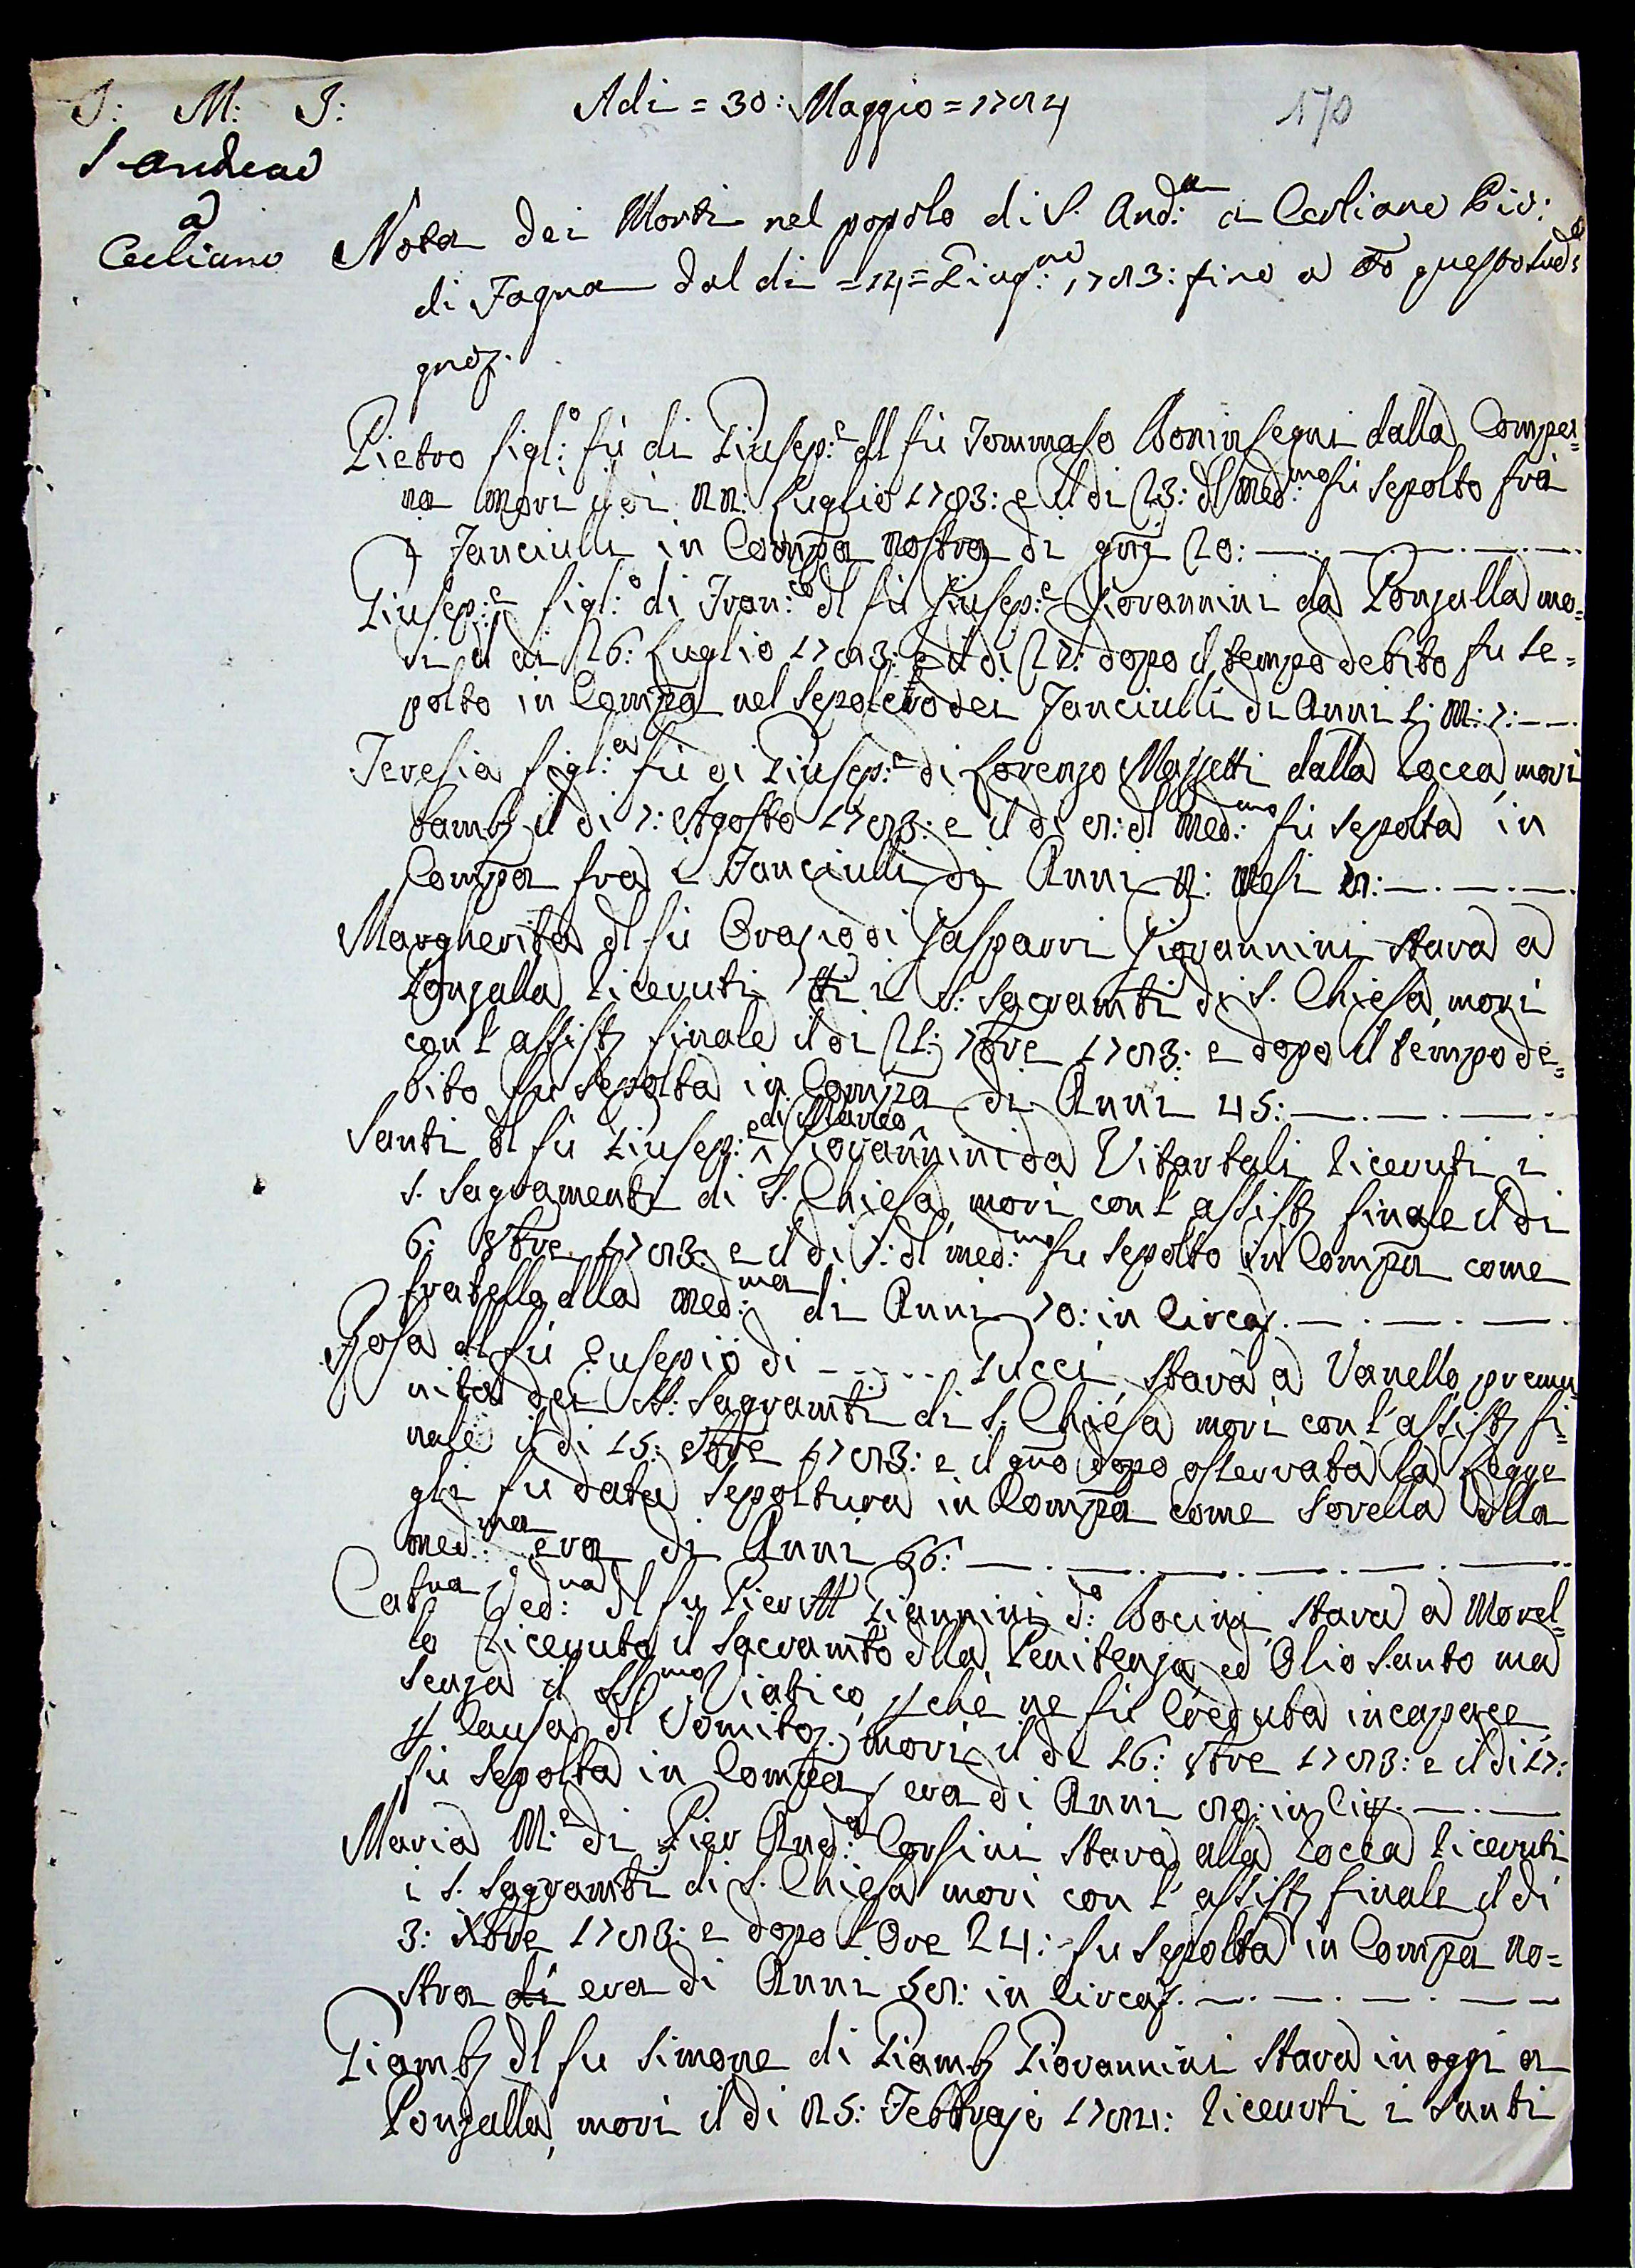 J: M: J:
Adi = 30: Maggio = 1784
170
S Andrea
a
Cerliano
Nota dei Morti nel popolo di S. And:a a Cerliano Piv:
di Fagna dal di = 14 = Giug:no 1783: fino a questo
Pietro figl:o fù di Giusep:e dl fù Tommaso Boninsegni dalla
morì il dì 22: Luglio 1783: e il dì 23: dl med:mo fù sepolto frà
i Fanciulli in Compa nostra di gni 20:
Giusep:e figl:o di Fran:co dl fù Giusep:e Giovannini da Ponzalla mo=
rì il dì 26: Luglio 1783: e il dì 27: dopo il tempo debito fu se=
polto in Compa nel Sepolcro dei Fanciulli di Anni 1; M: 7:
Teresia figl:a fù di Giusep:e di Lorenzo Mazzetti dalla Rocca, morì
il dì 7: Agosto 1783: e il dì 8: dl med:mo fù sepolta in
Compa fra i Fanciulli di Anni 2: mesi 8:
Margherita dl fù Orazio di Gasparri Giovannini stava a
Ponzalla ricevuti tti i S: Sacramti di S. Chiesa, morì
con l' assistz finale il dì 21; 7bre 1783: e dopo il tempo de=
bito fu sepolta in Compa di Anni 45:
Santi dl fù Giusep:e di Marco Giovannini da Vitartali ricevuti i
S. Sagramenti di S. Chiesa, morì con l' assistz finale il dì
6: 8bre 1783: e il dì 7: dl med:mo fu sepolto in Compa come
fratello dlla med:ma di Anni 70: in circa.
Rosa dl fù Eusepio di ------ Pucci, stava a Vanello, premu=
nita dei SS: Sagramti di S. Chiesa morì con l' assistz fi=
nale il dì 15: 8bre 1783: e il gno dopo osservata la Legge
gli fu data sepoltura in Compa come sorella dlla
med:ma era di Anni 66:
Cat:na Ved:va dl fu Pier Giannini d:o Bocini, stava a Morel=
lo ricevuto il Sacramto dlla Penitenza, ed Olio Santo ma
senza il SS:mo Viatico, pche ne fù creduta incapace
p causa dl Vomito; morì il dì 16: 8bre 1783: e il dì 17:
fù sepolta in Compa, era di Anni 80: in circ.
Maria M:e di Pier And:a Corsini stava alla Rocca ricevuti
i S. Sagramti di S. Chiesa morì con l' assistz finale il dì
3: Xbre 1783: e dopo l'Ore 24: fu sepolta in Compa no=
stra di era di Anni 58: in circa.
Giamb dl fu Simone di Giamb Giovannini stava in oggi a
Ponzalla, morì il dì 25: Febbrajo 1784: ricevuti i Santi